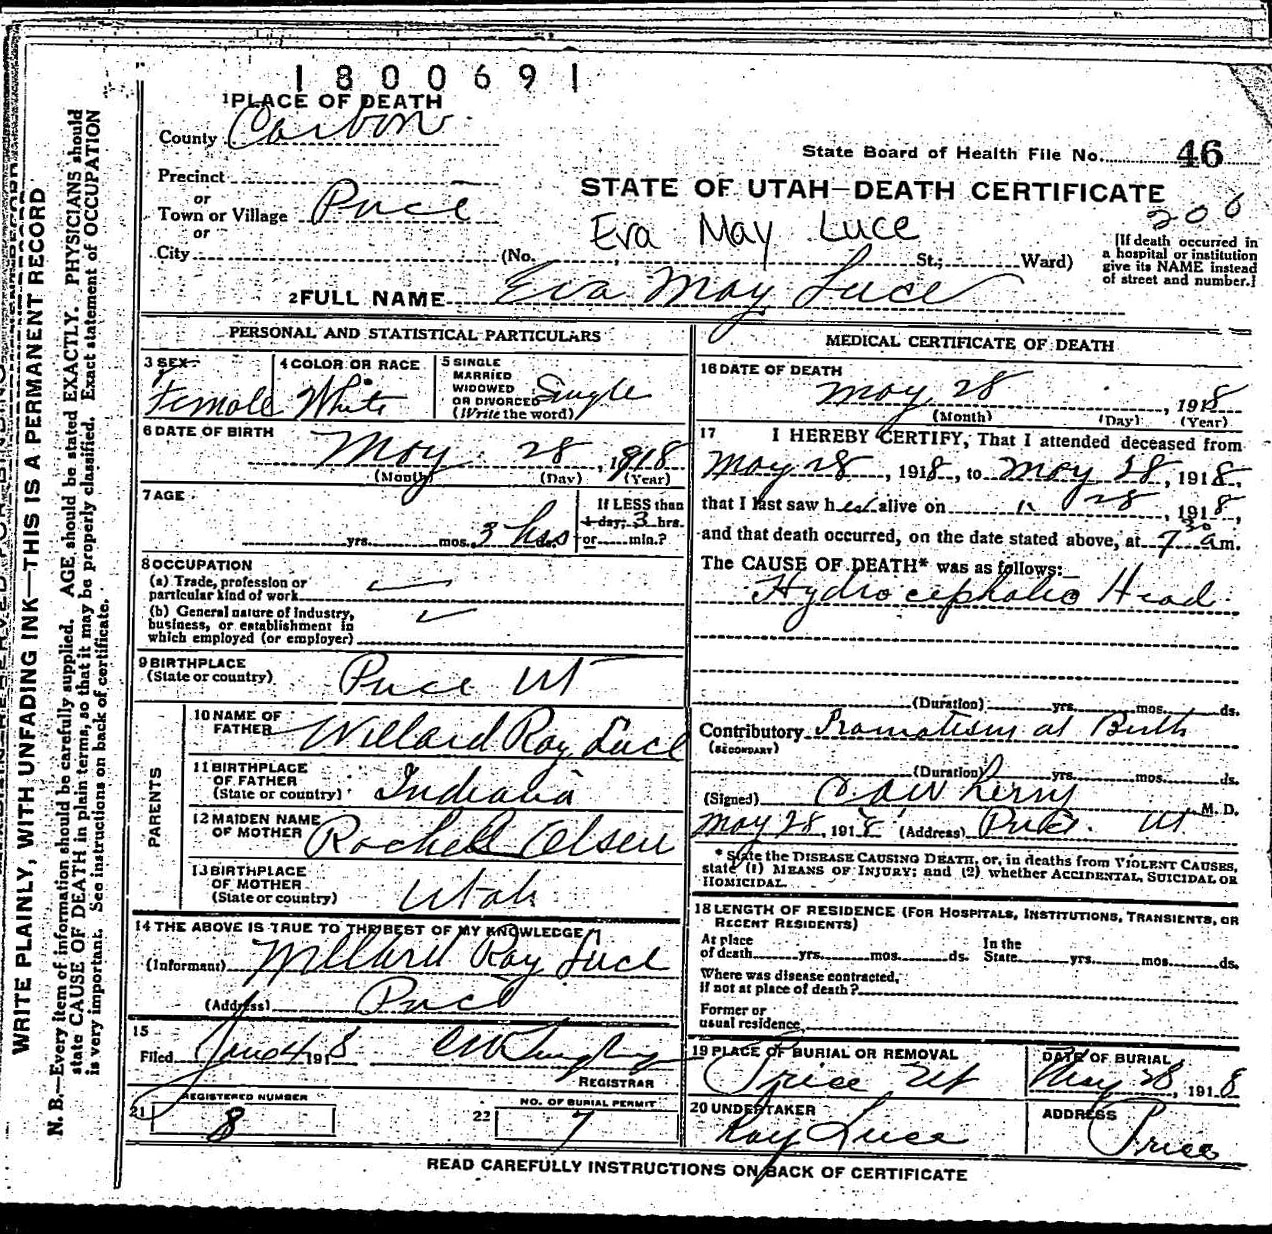 1800691
1 PLACE OF DEATH
County Carbon
State Board of Health File No. 46
Precinct
or
Town or Village Price
or
City
STATE OF UTAH—DEATH CERTIFICATE
206
Eva May Luce
(No. St.; Ward)
[If death occurred in
a hospital or institution
give its NAME instead
of street and number.]
2 FULL NAME Eva May Luce
PERSONAL AND STATISTICAL PARTICULARS
3 SEX Female
4 COLOR OR RACE White
5 SINGLE
MARRIED
WIDOWED
OR DIVORCED Single
(Write the word)
6 DATE OF BIRTH
May 28, 1918
(Month) (Day) (Year)
7 AGE
yrs. mos. 3 hrs ds.
If LESS than
1 day, 3 hrs.
or min.?
8 OCCUPATION
(a) Trade, profession or
particular kind of work
(b) General nature of industry,
business, or establishment in
which employed (or employer)
9 BIRTHPLACE
(State or country) Price Ut
PARENTS
10 NAME OF
FATHER Willard Ray Luce
11 BIRTHPLACE
OF FATHER
(State or country) Indiana
12 MAIDEN NAME
OF MOTHER Rachel Olsen
13 BIRTHPLACE
OF MOTHER
(State or country) Utah
14 THE ABOVE IS TRUE TO THE BEST OF MY KNOWLEDGE
(Informant) Willard Ray Luce
(Address) Price
15
Filed June 4 1918
REGISTRAR
21 REGISTERED NUMBER
8
22 NO. OF BURIAL PERMIT
7
MEDICAL CERTIFICATE OF DEATH
16 DATE OF DEATH
May 28, 1918
(Month) (Day) (Year)
17 I HEREBY CERTIFY, That I attended deceased from
May 28, 1918, to May 28, 1918,
that I last saw her alive on " 28, 1918,
and that death occurred, on the date stated above, at 7 30 a m.
The CAUSE OF DEATH* was as follows:
Hydrocephalic Head
(Duration) yrs. mos. ds.
Contributory at Birth
(SECONDARY)
(Duration) yrs. mos. ds.
(Signed) M. D.
May 28, 1918 (Address) Price Ut
* State the DISEASE CAUSING DEATH, or, in deaths from VIOLENT CAUSES,
state (1) MEANS OF INJURY; and (2) whether ACCIDENTAL, SUICIDAL OR
HOMICIDAL.
18 LENGTH OF RESIDENCE (FOR HOSPITALS, INSTITUTIONS, TRANSIENTS, OR
RECENT RESIDENTS)
At place
of death yrs. mos. ds.
In the
State yrs. mos. ds.
Where was disease contracted,
if not at place of death?
Former or
usual residence
19 PLACE OF BURIAL OR REMOVAL
Price Ut
DATE OF BURIAL
May 28, 1918
20 UNDERTAKER
Ray Luce
ADDRESS
Price
READ CAREFULLY INSTRUCTIONS ON BACK OF CERTIFICATE
WRITE PLAINLY, WITH UNFADING INK—THIS IS A PERMANENT RECORD
N. B.—Every item of information should be carefully supplied. AGE should be stated EXACTLY. PHYSICIANS should
state CAUSE OF DEATH in plain terms, so that it may be properly classified. Exact statement of OCCUPATION
is very important. See instructions on back of certificate.